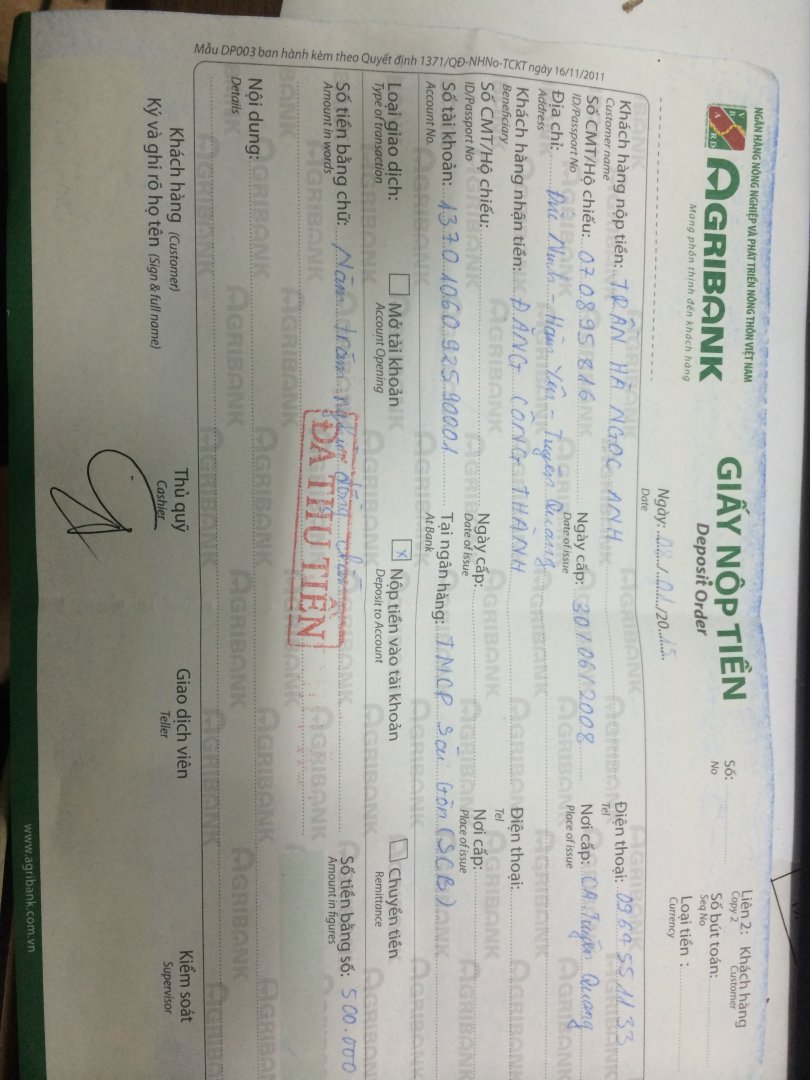 NGÂN HÀNG NÔNG NGHIỆP VÀ PHÁT TRIỂN NÔNG THÔN VIỆT NAM
AGRIBANK
Mang phồn thịnh đến khách hàng
GIẤY NỘP TIỀN
Deposit Order
Ngày: 08/01/2015
Date
Số:
No
Liên 2: Khách hàng
Copy 2 Customer
Số bút toán:
Seq No
Loại tiền:
Currency
Khách hàng nộp tiền: TRẦN HÀ NGỌC ANH Điện thoại: 0969551133
Customer name Tel
Số CMT/Hộ chiếu: 070895816 Ngày cấp: 30/06/2008 Nơi cấp: CA. Tuyên Quang
ID/Passport No Date of issue Place of issue
Địa chỉ: Đức Ninh - Hàm Yên - Tuyên Quang
Address
Khách hàng nhận tiền: ĐẶNG CÔNG THÀNH Điện thoại:
Beneficiary Tel
Số CMT/Hộ chiếu: Ngày cấp: Nơi cấp:
ID/Passport No Date of issue Place of issue
Số tài khoản: 1370 1060 925 90001 Tại ngân hàng: TMCP Sài Gòn (SCB)
Account No. At Bank
Loại giao dịch: Mở tài khoản x Nộp tiền vào tài khoản Chuyển tiền
Type of transaction Account Opening Deposit to Account Remittance
Số tiền bằng chữ: Năm trăm nghìn đồng chẵn Số tiền bằng số: 500.000
Amount in words Amount in figures
ĐÃ THU TIỀN
Nội dung:
Details
Khách hàng (Customer) Thủ quỹ Giao dịch viên Kiểm soát
Ký và ghi rõ họ tên (Sign & full name) Cashier Teller Supervisor
Mẫu DP003 ban hành kèm theo Quyết định 1371/QĐ-NHNo-TCKT ngày 16/11/2011
www.agribank.com.vn